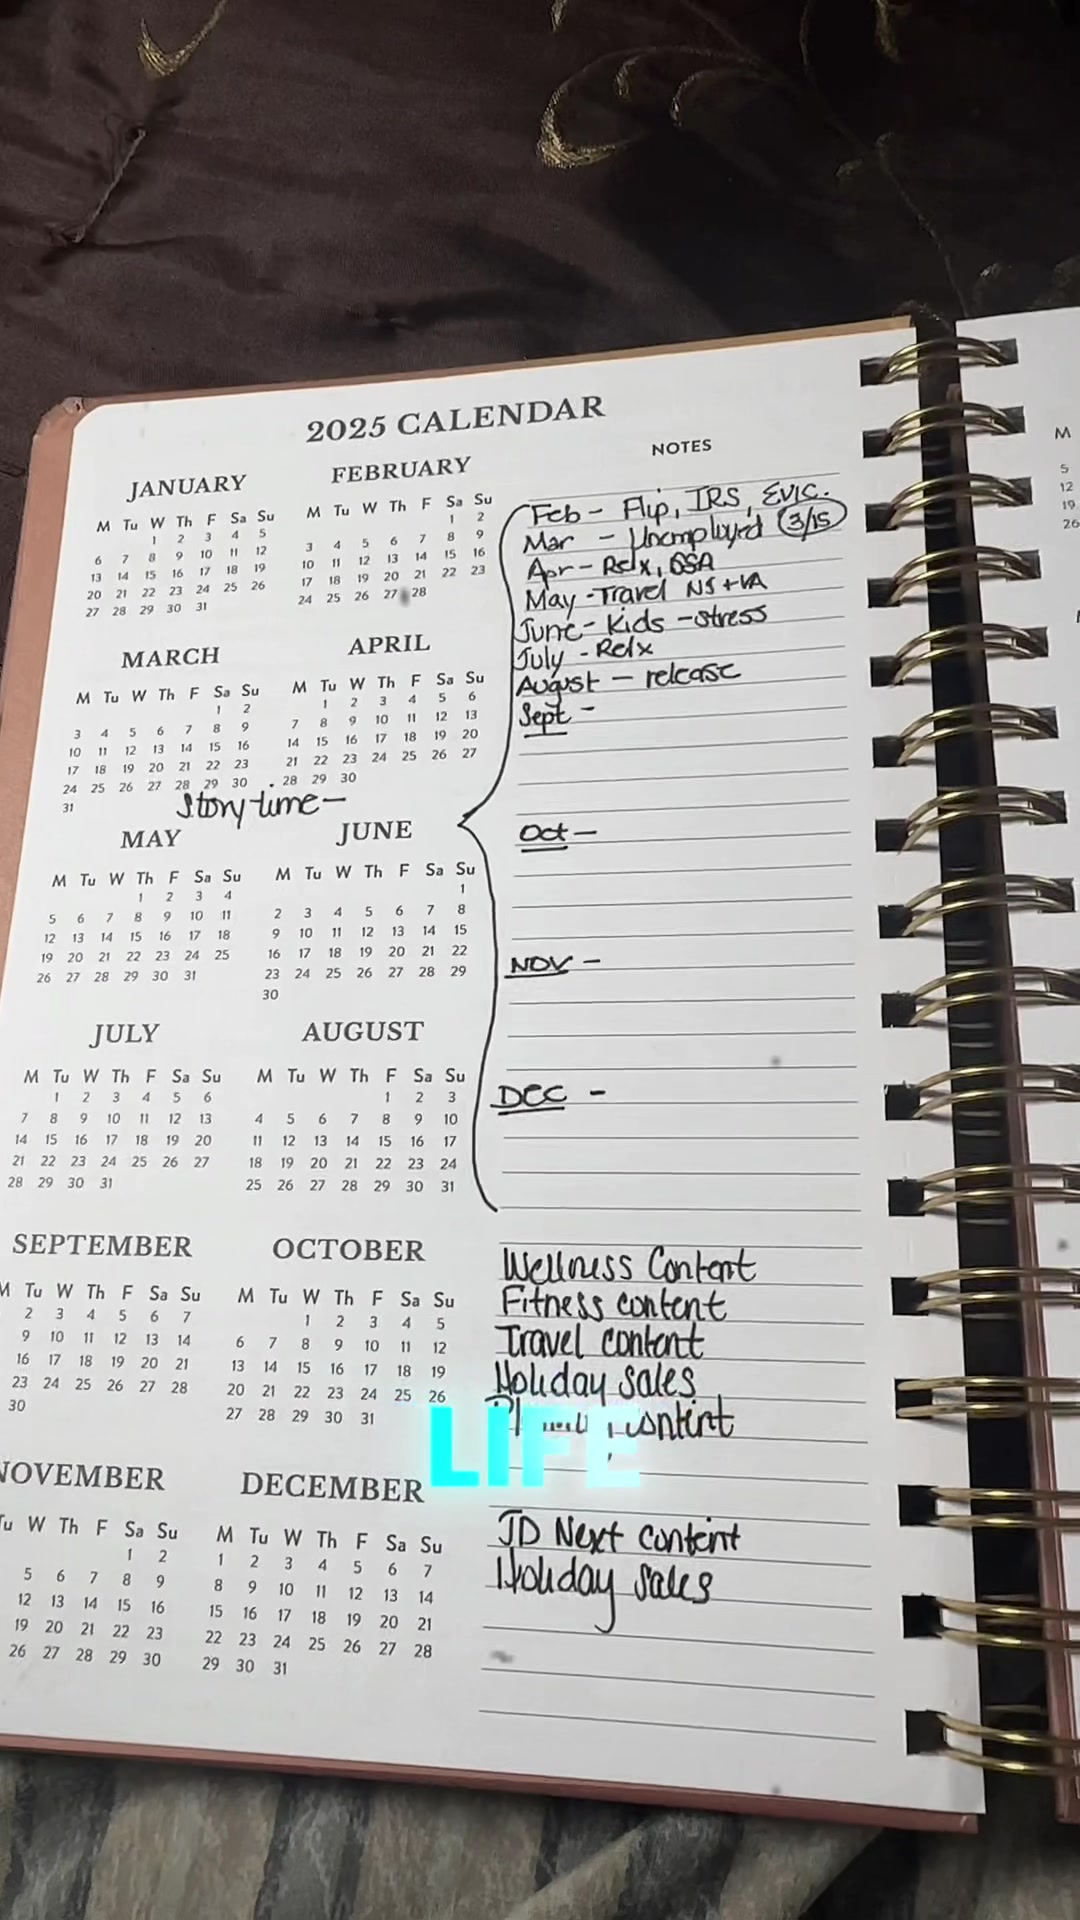 2025 CALENDAR
NOTES
JANUARY
M Tu W Th F Sa Su
1 2 3 4 5
6 7 8 9 10 11 12
13 14 15 16 17 18 19
20 21 22 23 24 25 26
27 28 29 30 31
FEBRUARY
M Tu W Th F Sa Su
1 2
3 4 5 6 7 8 9
10 11 12 13 14 15 16
17 18 19 20 21 22 23
24 25 26 27 28
MARCH
M Tu W Th F Sa Su
1 2
3 4 5 6 7 8 9
10 11 12 13 14 15 16
17 18 19 20 21 22 23
24 25 26 27 28 29 30
31
APRIL
M Tu W Th F Sa Su
1 2 3 4 5 6
7 8 9 10 11 12 13
14 15 16 17 18 19 20
21 22 23 24 25 26 27
28 29 30
Story time -
MAY
M Tu W Th F Sa Su
1 2 3 4
5 6 7 8 9 10 11
12 13 14 15 16 17 18
19 20 21 22 23 24 25
26 27 28 29 30 31
JUNE
M Tu W Th F Sa Su
1
2 3 4 5 6 7 8
9 10 11 12 13 14 15
16 17 18 19 20 21 22
23 24 25 26 27 28 29
30
JULY
M Tu W Th F Sa Su
1 2 3 4 5 6
7 8 9 10 11 12 13
14 15 16 17 18 19 20
21 22 23 24 25 26 27
28 29 30 31
AUGUST
M Tu W Th F Sa Su
1 2 3
4 5 6 7 8 9 10
11 12 13 14 15 16 17
18 19 20 21 22 23 24
25 26 27 28 29 30 31
SEPTEMBER
M Tu W Th F Sa Su
2 3 4 5 6 7
9 10 11 12 13 14
16 17 18 19 20 21
23 24 25 26 27 28
30
OCTOBER
M Tu W Th F Sa Su
1 2 3 4 5
6 7 8 9 10 11 12
13 14 15 16 17 18 19
20 21 22 23 24 25 26
27 28 29 30 31
NOVEMBER
Tu W Th F Sa Su
1 2
5 6 7 8 9
12 13 14 15 16
19 20 21 22 23
26 27 28 29 30
DECEMBER
M Tu W Th F Sa Su
1 2 3 4 5 6 7
8 9 10 11 12 13 14
15 16 17 18 19 20 21
22 23 24 25 26 27 28
29 30 31
Feb - Flip, IRS, Evic.
Mar - Unemployed 3/15
Apr - Relx,
May - Travel NS + VA
June - Kids - stress
July - Relx
August - release
Sept -
Oct -
NOV -
DEC -
Wellness Content
Fitness content
Travel content
Holiday Sales
content
LIFE
JD Next content
Holiday Sales
M
5
12
19
26